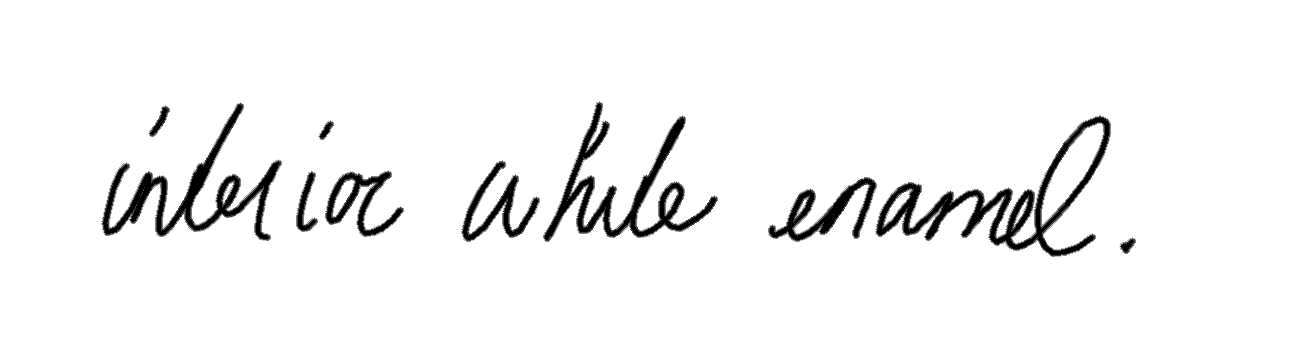 interior white enamel.